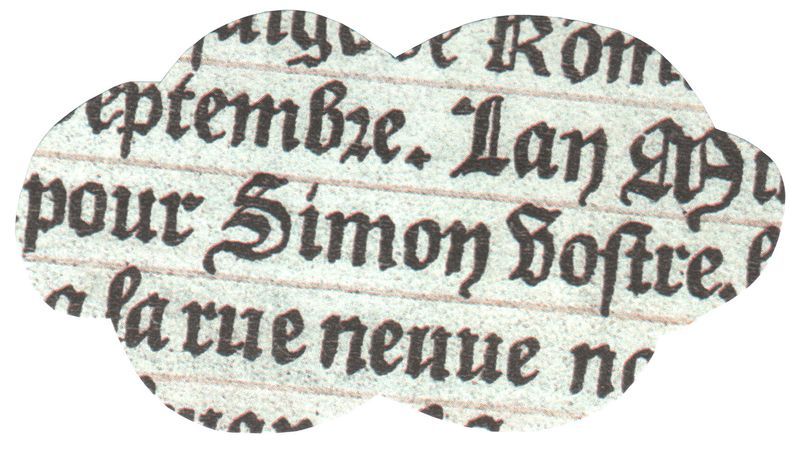 Rom
eptembre. Lan Mi
pour Simon Vostre.
a la rue neuue no